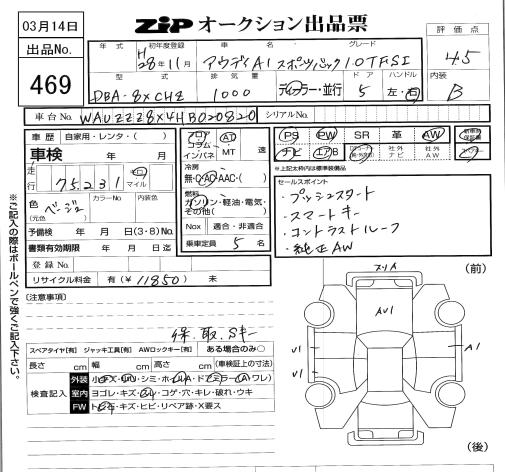 03月14日
出品No.
469
ZIP オークション出品票
評価点
4.5
内装
B
年式 初年度登録 車名 グレード
H28年11月 アウディA1 スポーツバック1.0TFSI
型式 排気量 ドア ハンドル
DBA-8XCHZ 1000 ディーラー・並行 5 左・右
車台No. WAUZZZ8X4HB020820 シリアルNo.
車歴 自家用・レンタ・( )
車検 年 月
走行 75,231 キロ マイル
色 (元色) ベージュ カラーNo. 内装色
予備検 年 月 日(3・8)No.
書類有効期限 年 月 日迄
登録No.
リサイクル料金 有(¥11850) 未
フロア コラム インパネ AT MT 速
冷房 無・C・AC・AAC・( )
燃料 ガソリン・軽油・電気・その他( )
Nox 適合・非適合
乗車定員 5 名
PS PW SR 革 AW
ナビ エアB 社外ナビ 社外AW
※上記太枠内は標準装備品
セールスポイント
・プッシュスタート
・スマートキー
・コントラストルーフ
・純正AW
※ご記入の際はボールペンで強くご記入下さい。
(注意事項)
保.取.Sキー
スペアタイヤ[有] ジャッキ工具[有] AWロックキー[有] ある場合のみ○
長さ cm 幅 cm 高さ cm (車検証上の寸法)
検査記入
外装
室内 ヨゴレ・キズ・コゲ・穴・キレ・破れ・ウキ
FW トビ石・キズ・ヒビ・リペア跡・X要ス
(前)
AU1
U1
U1
A1
(後)